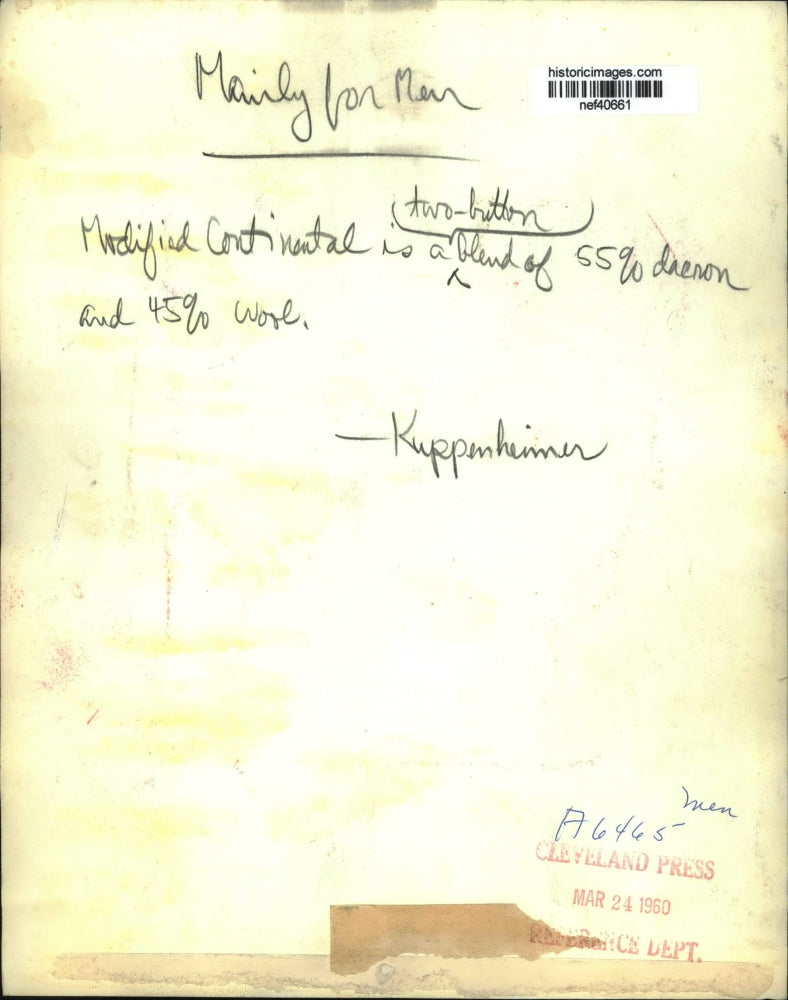 historicimages.com
nef40661
Mainly for Men
two-button
Modified Continental is a blend of 55% dacron
and 45% wool.
—Kuppenheimer
men
A6465
CLEVELAND PRESS
MAR 24 1960
REFERENCE DEPT.